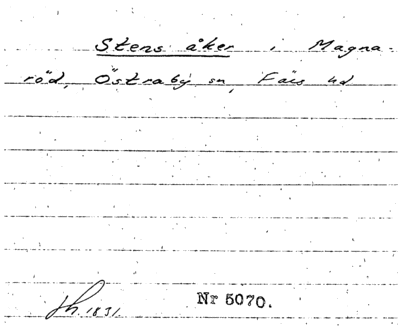 Stens åker i Magna-
röd, Östraby sn, Färs hd
Jh. 1831
Nr 5070.